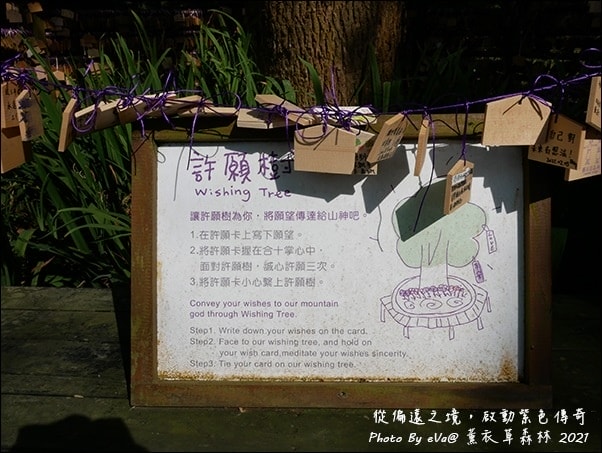 許願樹
Wishing Tree
讓許願樹為你，將願望傳達給山神吧。
1.在許願卡上寫下願望。
2.將許願卡握在合十掌心中，
面對許願樹，誠心許願三次。
3.將許願卡小心繫上許願樹。
Convey your wishes to our mountain
god through Wishing Tree.
Step1. Write down your wishes on the card.
Step2. Face to our wishing tree, and hold on
your wish card,meditate your wishes sincerity.
Step3. Tie your card on our wishing tree.
從偏遠之境，啟動紫色傳奇
Photo By eVa@ 薰衣草森林 2021